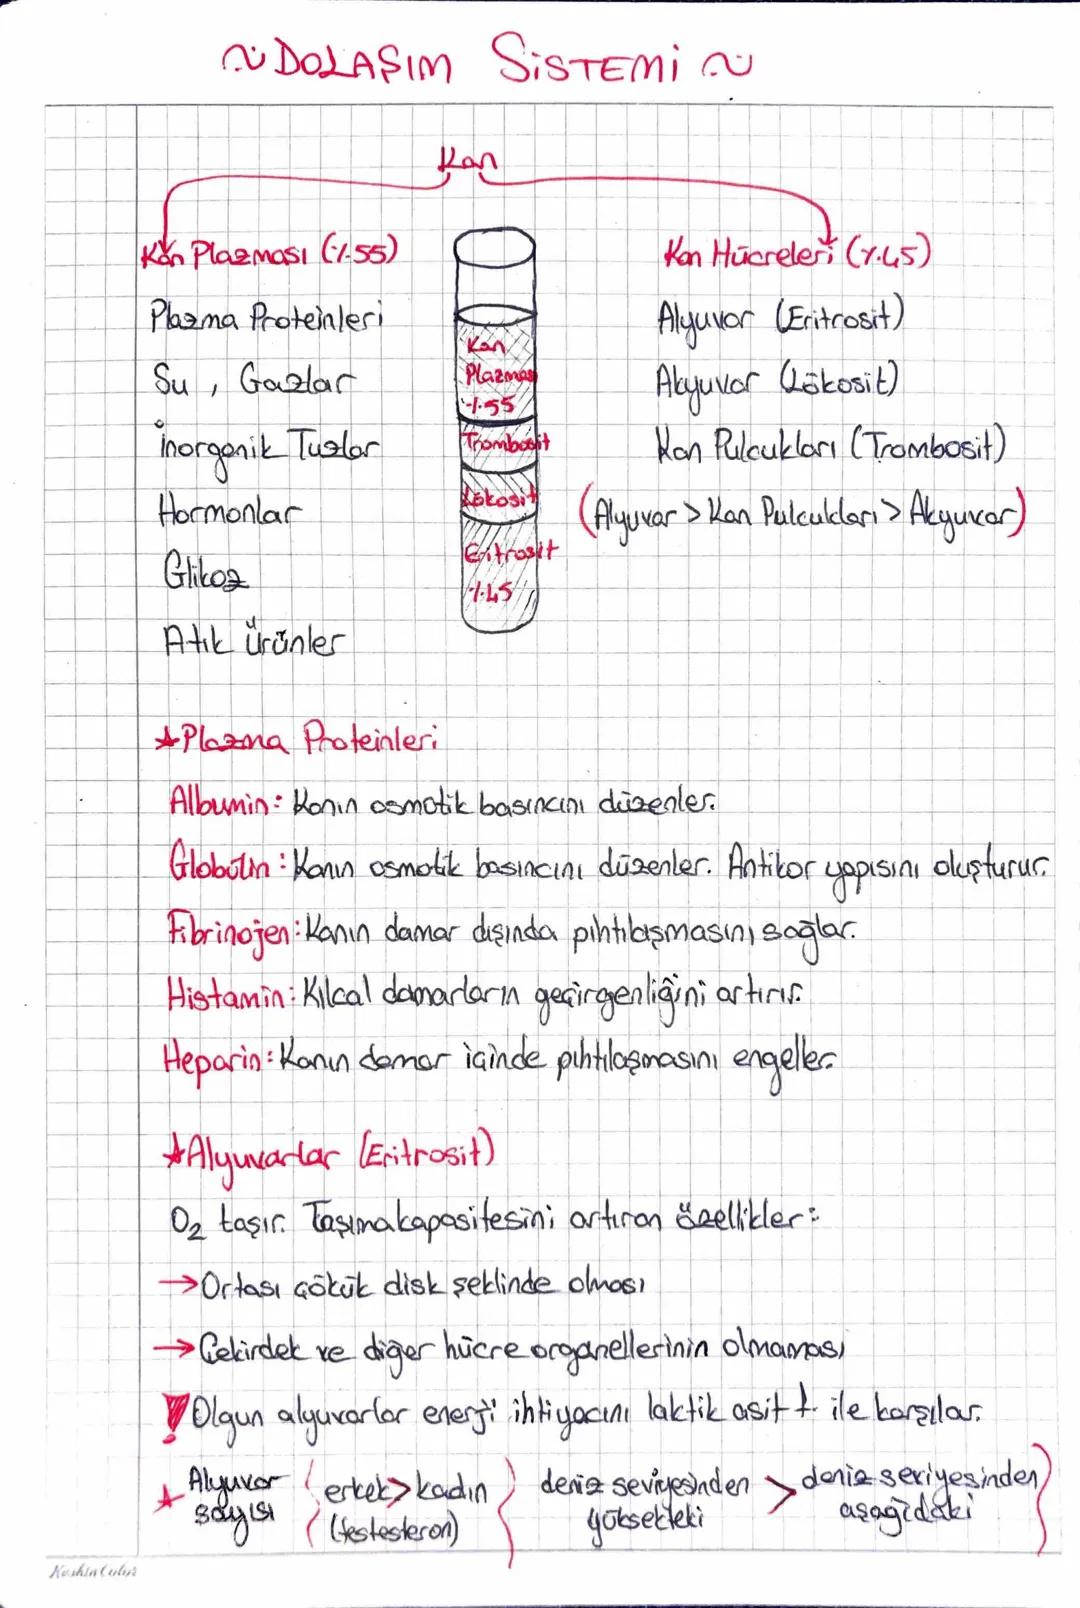 ~ DOLAŞIM SİSTEMİ ~
Kan
Kan Plazması (%55)
Plazma Proteinleri
Su, Gazlar
İnorganik Tuzlar
Hormonlar
Glikoz
Atık Ürünler
Kan
Plazması
%55
Trombosit
Lökosit
Eritrosit
%45
Kan Hücreleri (%45)
Alyuvar (Eritrosit)
Akyuvar (Lökosit)
Kan Pulcukları (Trombosit)
(Alyuvar > Kan Pulcukları > Akyuvar)
★Plazma Proteinleri
Albumin: Kanın osmotik basıncını düzenler.
Globülin: Kanın osmotik basıncını düzenler. Antikor yapısını oluşturur.
Fibrinojen: Kanın damar dışında pıhtılaşmasını sağlar.
Histamin: Kılcal damarların geçirgenliğini artırır.
Heparin: Kanın damar içinde pıhtılaşmasını engeller.
★Alyuvarlar (Eritrosit)
O₂ taşır. Taşıma kapasitesini artıran özellikler:
→Ortası çökük disk şeklinde olması
→Çekirdek ve diğer hücre organellerinin olmaması
! Olgun alyuvarlar enerji ihtiyacını laktik asit f. ile karşılar.
★ Alyuvar sayısı
erkek > kadın
(testesteron)
deniz seviyesinden yüksekteki > deniz seviyesinden aşağıdaki